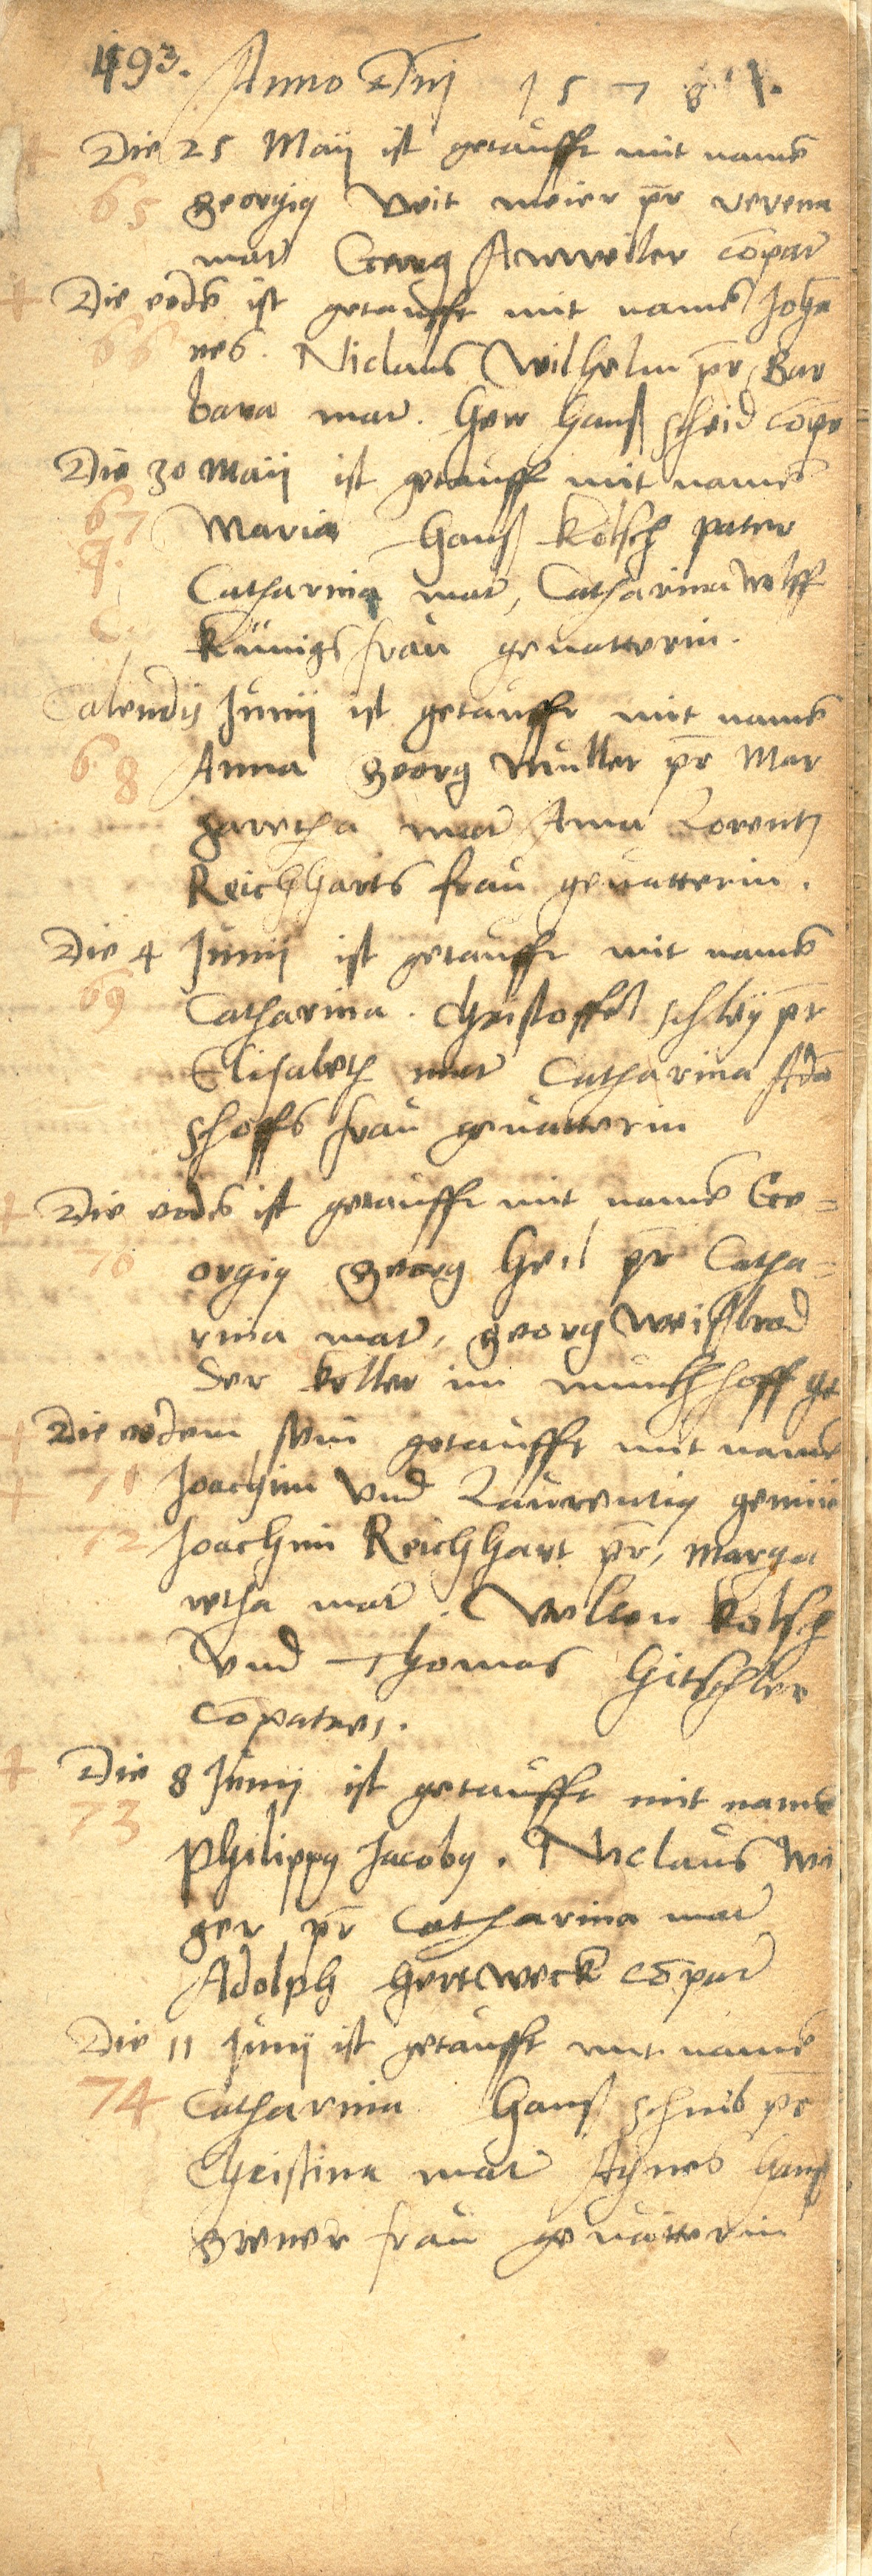 493. Anno Dnj 1578
Die 25 Maij ist getaufft mit name
65 georgig Veit meier pr verena
mat Georg Anweiler copat
Die eode ist getaufft mit name Joha
66 nes. Niclaus Wilhelm pr, Bar
bara mat. Her Hanß scheid cope
Die 30 Maij ist getaufft mit name
67 Maria Hanß Kolsch pater
Catharina mat, Catharina Wolff
C. Künigs frau geuatterin.
Calendis Junij ist getaufft mit name
68 Anna Georg Muller pr Mar
garetha mat Anna Lorentz
Reichharts frau geuatterin.
Die 4 Junij ist getaufft mit name
69 Catharina. Christoffel schley pr
Elisabeth mat Catharina Ada
schoffs frau geuatterin
Die eode ist getaufft mit name Ge=
70 orgig Georg Heil pr Catha=
rina mat, georg Weißbrod
der keller im munchhoff ge
Die eodem sein getaufft mit name
71 Joachim und Laurentig
72 Joachim Reichhart pr, Marga
retha mat. Velten Kolsch
und Thomas Hitschler
copatres.
Die 8 Junij ist getaufft mit name
73 Philippg Jacobg. Niclaus We
ger pr Catharina mat
Adolph Hertweck copat
Die 11 Junij ist getaufft mit name
74 Catharina Hanß pr
Christina mat Agnes Hanß
frau geuatterin